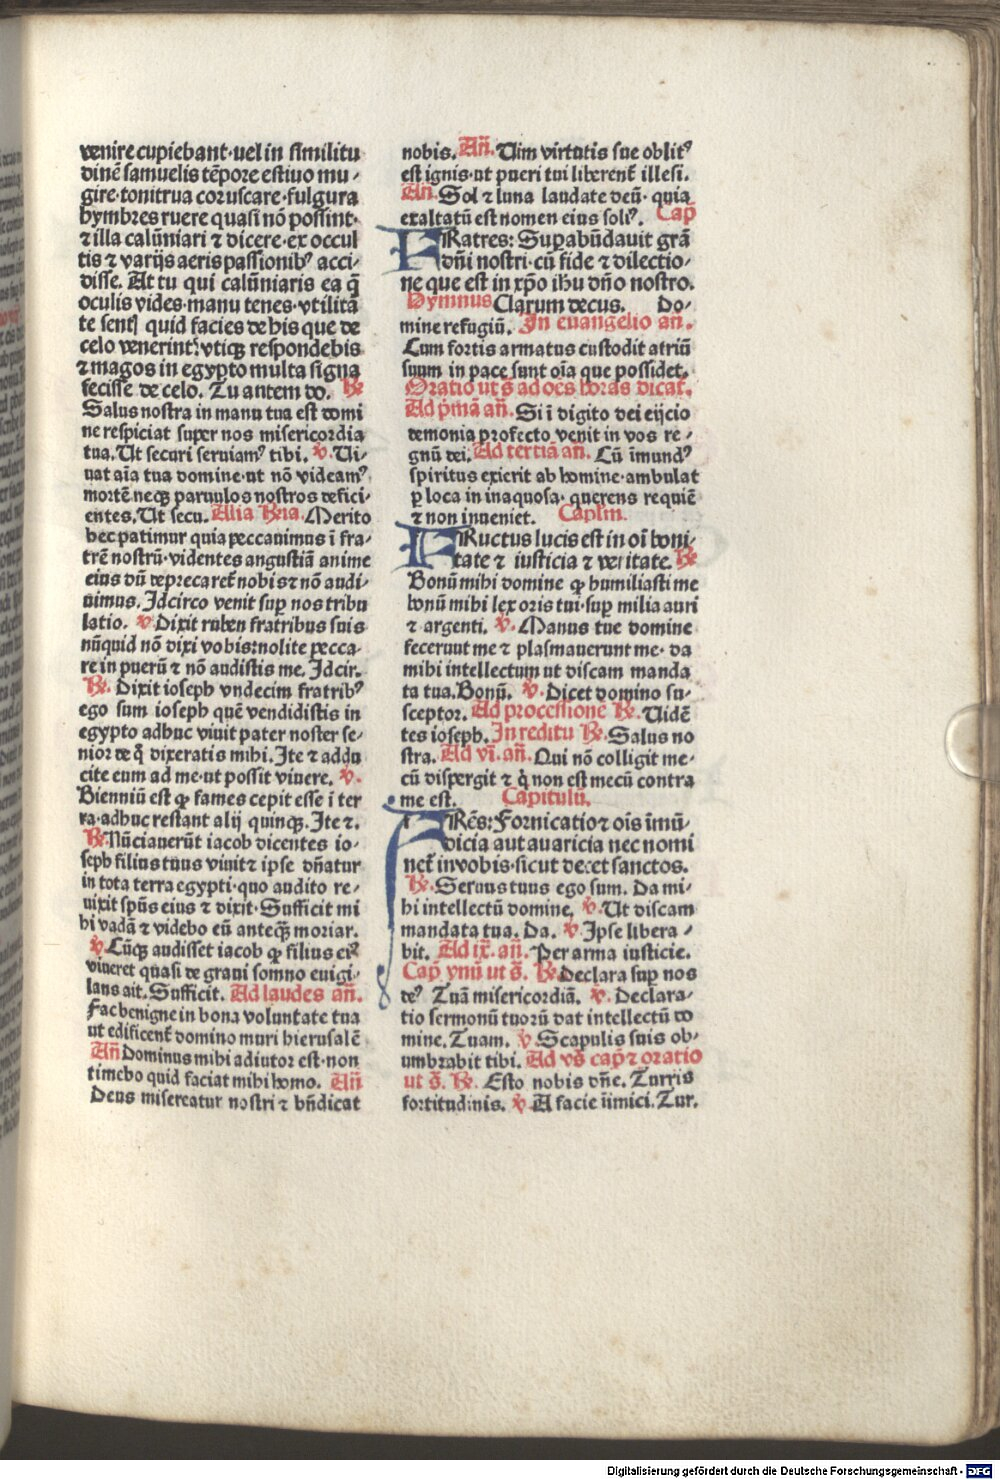 venire cupiebant·vel in similitu
dinē samuelis tēpore estiuo mu⸗
gire·tonitrua coruscare·fulgura
hymbres ruere quasi nō possint·
⁊ illa calūniari ⁊ dicere·ex occul
tis ⁊ varijs aeris passionibꝰ acci⸗
disse. At tu qui calūniaris ea q̄
oculis vides·manu tenes·vtilitā
te sentꝭ quid facies de his que de
celo venerint? vtiqꝫ respondebis
⁊ magos in egypto multa signa
fecisse de celo. Tu autem do. ℞
Salus nostra in manu tua est domi
ne respiciat super nos misericordia
tua. Ut securi seruiamꝰ tibi. ℣. Ui⸗
uat aīa tua domine·ut nō videamꝰ
mortē necqꝫ paruulos nostros defici⸗
entes. Ut secu. Alia ℞ia. Merito
hec patimur quia peccauimus ī fra⸗
trē nostrū·videntes angustiā anime
eius dū deprecaret̄ nobis ⁊ nō audi⸗
uimus. Idcirco venit suꝑ nos tribu
latio. ℣. Dixit ruben fratribus suis
nūquid nō dixi vobis:nolite pecca⸗
re in puerū ⁊ nō audistis me. Idcir.
℞. Dixit ioseph vndecim fratribꝰ
ego sum ioseph quē vendidistis in
egypto adhuc viuit pater noster se⸗
nior de q̄ dixeratis mihi. Ite ⁊ addu
cite eum ad me·ut possit viuere. ℣.
Bienniū est ꝙ fames cepit esse ī ter
ra·adhuc restant alij quinqꝫ. Ite ⁊.
℞. Nūciauerūt iacob dicentes io⸗
seph filius tuus viuit ⁊ ipse dn̄atur
in tota terra egypti·quo audito re⸗
uixit sp̄us eius ⁊ dixit· Sufficit mi
hi vadā ⁊ videbo eū anteqꝫ̄ moriar.
℣. Cūqꝫ audisset iacob ꝙ filius eiꝰ
viueret quasi de graui somno euigi⸗
lans ait. Sufficit. Ad laudes an̄.
Fac benigne in bona voluntate tua
ut edificent̄ domino muri hierusalē
An̄ Dominus mihi adiutor est·non
timebo quid faciat mihi homo. An̄
Deus misereatur nostri ⁊ bn̄dicat
nobis. An̄. Uim virtutis sue oblitꝰ
est ignis·ut pueri tui liberent̄ illesi.
An̄. Sol ⁊ luna laudate deū· quia
exaltatū est nomen eius soliꝰ. Cap̄
FRatres: Suꝑabūdauit grā
dn̄i nostri·cū fide ⁊ dilectio⸗
ne que est in xp̄o ihu dn̄o nostro.
Hymnus Clarum decus. Do⸗
mine refugiū. In euangelio an̄.
Cum fortis armatus custodit atriū
suum in pace sunt oīa que possidet.
Oratio ut s̄ ad oēs horas dicat̄.
Ad p̄mā an̄. Si ī digito dei eijcio
demonia profecto venit in vos re⸗
gnū dei. Ad tertiā an̄. Cū īmundꝰ
spiritus exierit ab homine·ambulat
ꝑ loca in inaquosa· querens requiē
⁊ non inueniet. Caplm̄.
FRuctus lucis est in oī boni⸗
tate ⁊ iusticia ⁊ veritate. ℞
Bonū mihi domine ꝙ humiliasti me
bonū mihi lex oris tui·suꝑ milia auri
⁊ argenti. ℣. Manus tue domine
fecerunt me ⁊ plasmauerunt me· da
mihi intellectum ut discam manda
ta tua. Bonū. ℣. Dicet domino su⸗
sceptor. Ad processionē ℞. Uidē
tes ioseph. In reditu ℞. Salus no
stra. Ad vi. an̄. Qui nō colligit me⸗
cū dispergit ⁊ q̄ non est mecū contra
me est. Capitulū.
FRēs: Fornicatio ⁊ oīs īmū⸗
dicia aut auaricia nec nomi
net̄ in vobis·sicut decet sanctos.
℞. Seruus tuus ego sum. Da mi⸗
hi intellectū domine. ℣. Ut discam
mandata tua. Da. ℣. Ipse libera⸗
bit. Ad ix. an̄. Per arma iusticie.
Cap̄ ymnū ut s̄. ℞. Declara suꝑ nos
deꝰ Tuā misericordiā. ℣. Declara⸗
tio sermonū tuorū dat intellectū do
mine. Tuam. ℣ Scapulis suis ob⸗
umbrabit tibi. Ad vs̄ cap̄ ⁊ oratio
ut s̄. ℞. Esto nobis dn̄e. Turris
fortitudinis. ℣. A facie īimici. Tur.
Digitalisierung gefördert durch die Deutsche Forschungsgemeinschaft - DFG